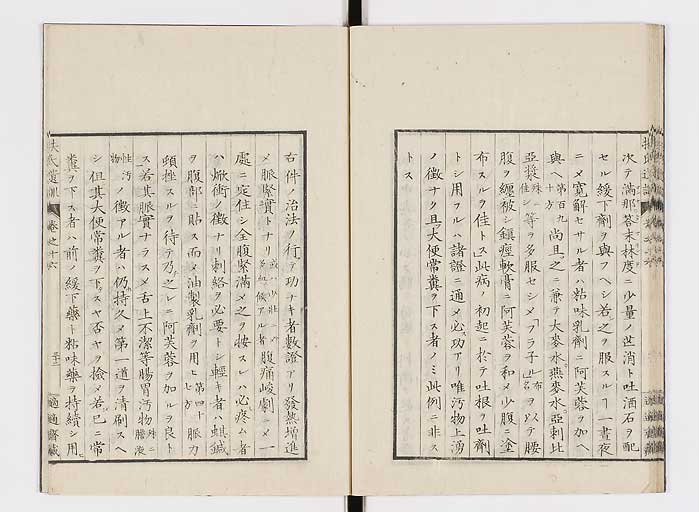 次テ満那答末林度ニ少量ノ芒消ト吐酒石ヲ配
セル緩下劑ヲ與フヘシ若之ヲ服スルヿ一晝夜
ニメ寛解セサル者ハ粘味乳劑ニ阿芙蓉ヲ加ヘ
與ヘ第百九十方尚且之ニ兼テ大麥水燕麥水亞刺比
亞漿殊ニ佳シ等ヲ多服セシメ「フラ子ル」布名ヲ以テ腰
腹ヲ纏被シ鎮痙軟膏ニ阿芙蓉ヲ和メ少腹ニ塗
布スルヲ佳トス此病ノ初起ニ於テ吐根ヲ吐劑
トシ用フルハ諸證ニ通メ必功アリ唯汚物上湧
ノ徴ナク且大便常糞ヲ下ス者ノミ此例ニ非ス
トス
右件ノ治法ノ行テ功ナキ者數證アリ發熱増進
メ脈緊實トナリ或ハ少壯ニメ多血ノ候アル者腹痛峻劇ニメ一
處ニ定住シ全腹緊滿メ之ヲ按スレハ必疼ム者
ハ焮衝ノ徴ナリ刺絡ヲ必要トシ輕キ者ハ蜞鍼
ヲ腹部ニ貼ス而メ油製乳劑ヲ用ヒ第四十七方脈力
頓挫スルヲ待テ乃之レニ阿芙蓉ヲ加ルヲ良ト
ス若其脈實ナラスメ舌上不潔等腸胃汚物殊ニ膽液
性汚物ノ徴アル者ハ仍持久メ第一道ヲ清刷スヘ
シ但其大便常糞ヲ下スヤ否ヤヲ撿メ若已ニ常
糞ヲ下ス者ハ前ノ緩下藥ト粘味藥ヲ持續シ用
扶氏遺訓
卷之十六
適適齋藏